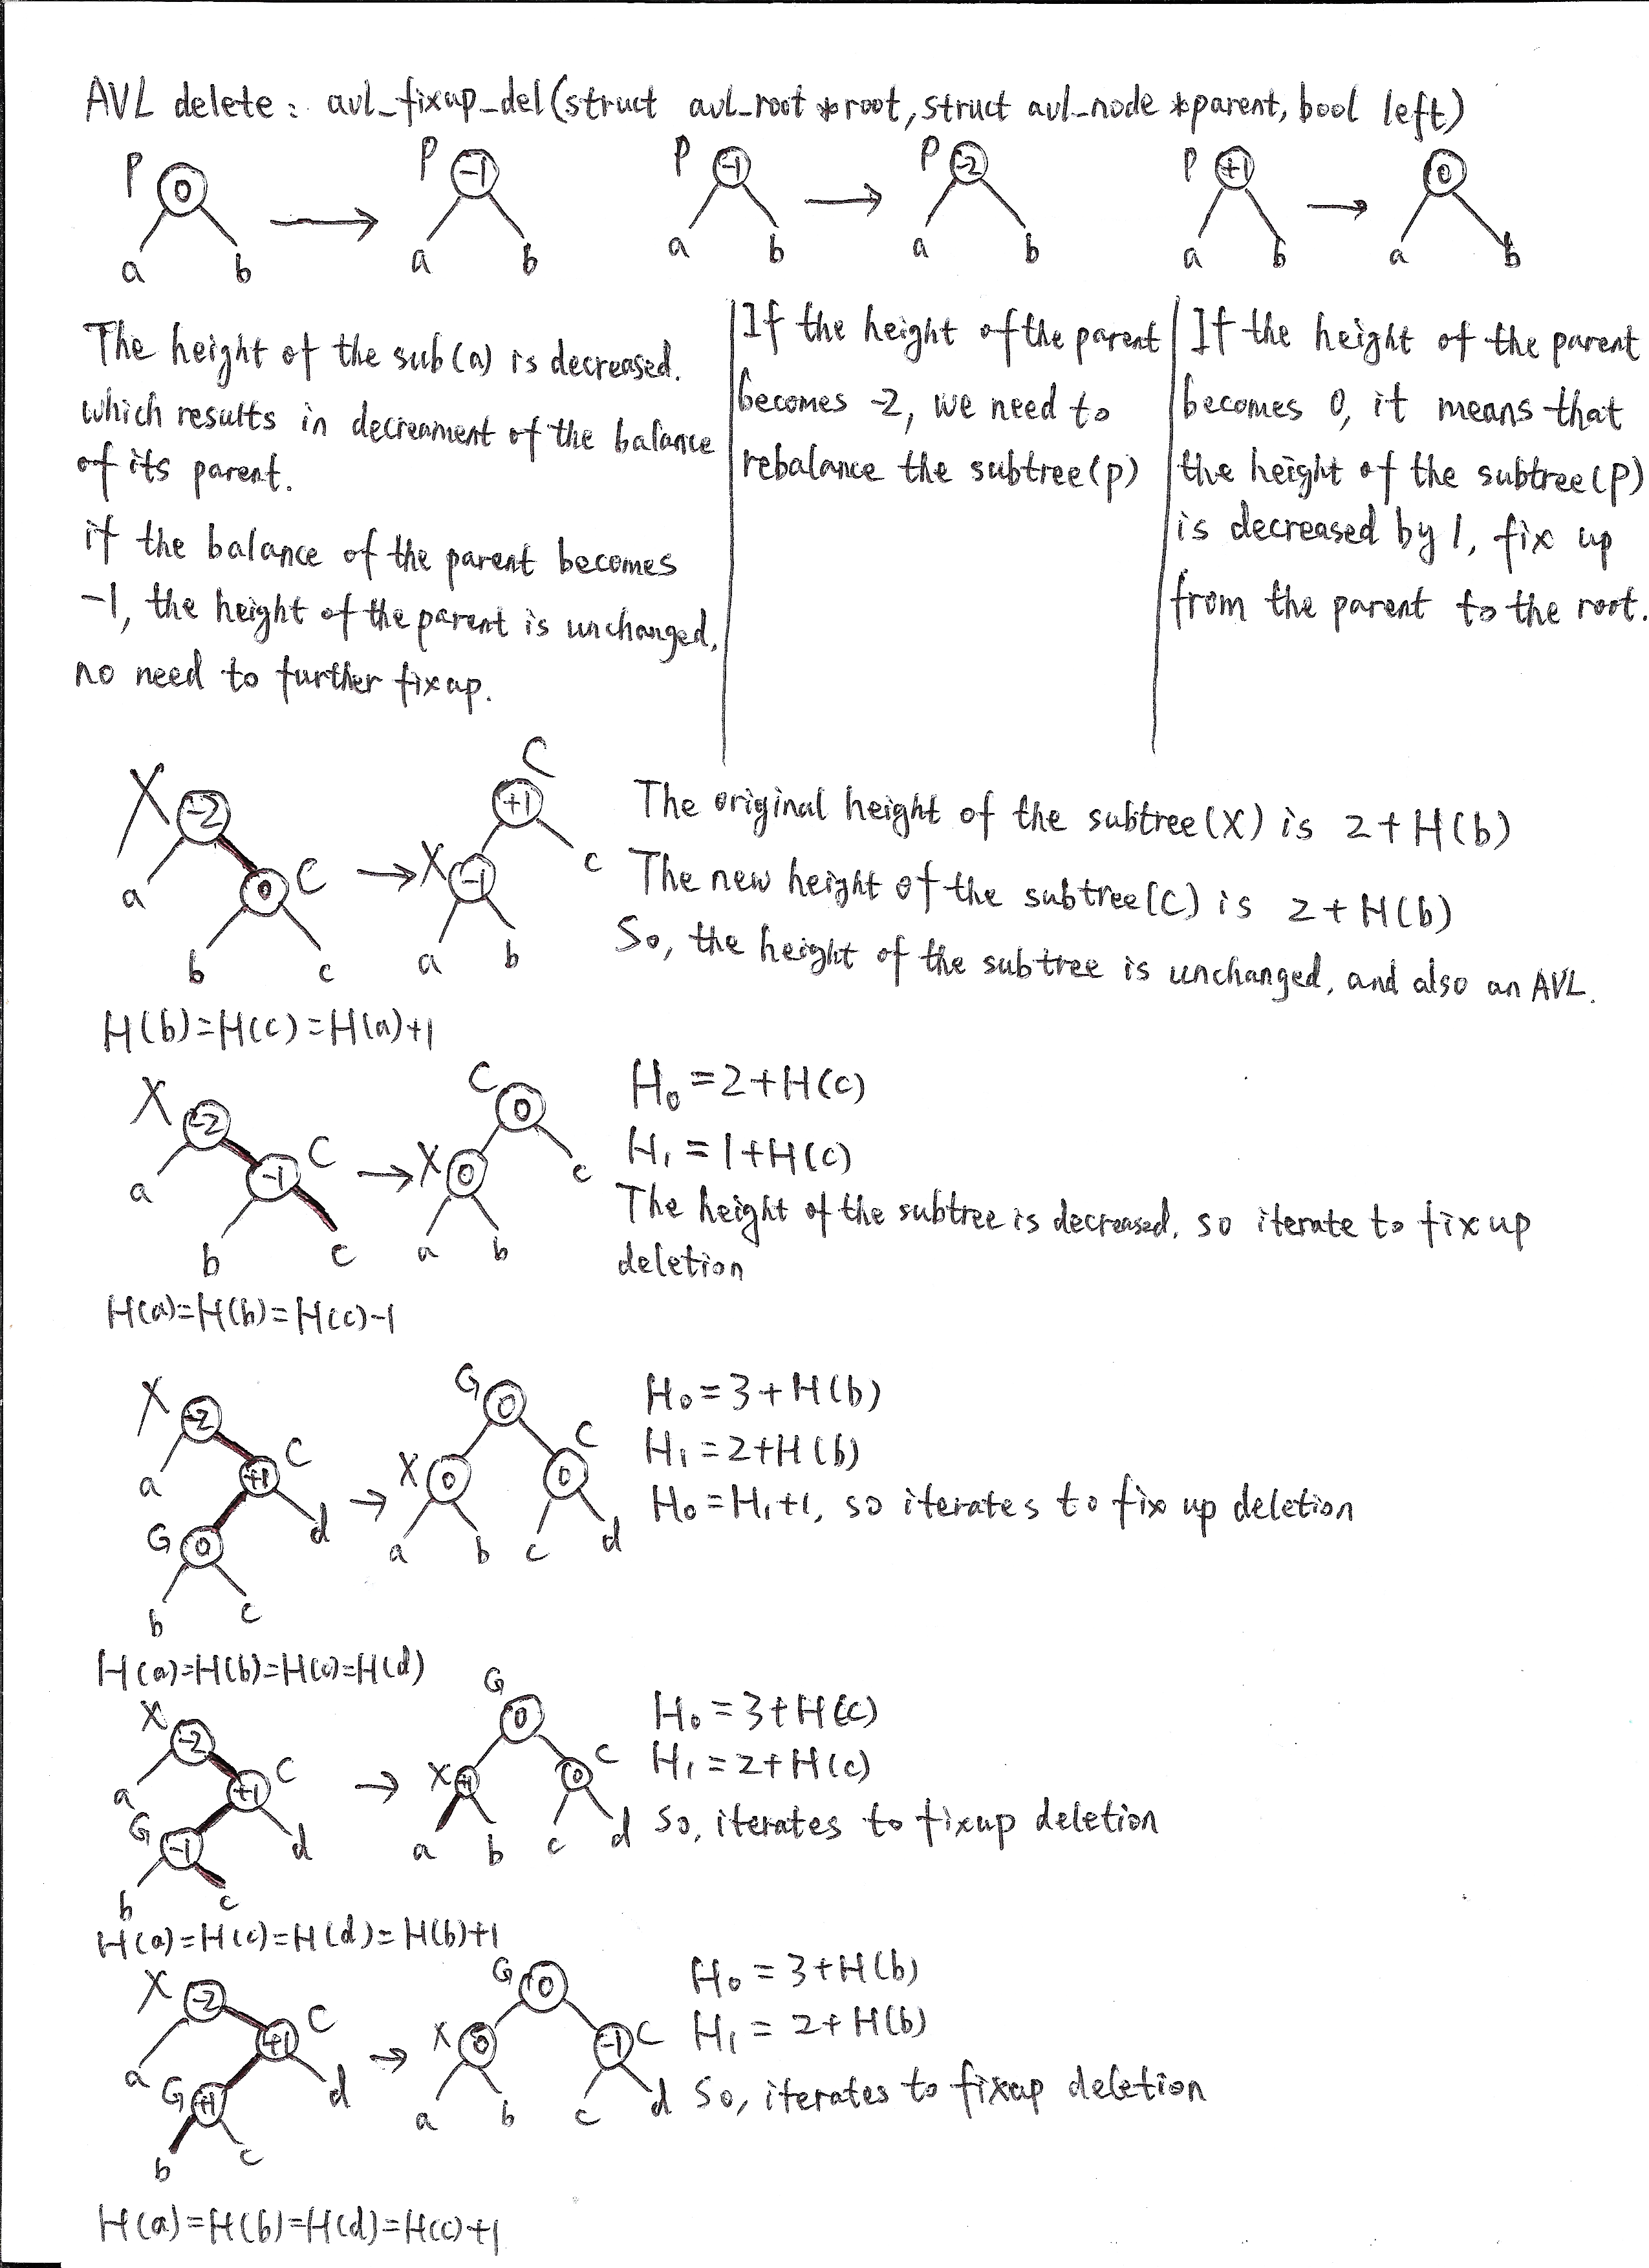 AVL delete: avl_fixup_del(struct avl_root *root, struct avl_node *parent, bool left)
P 0 a b → P -1 a b
P -1 a b → P -2 a b
P +1 a b → 0 a b
The height of the sub(a) is decreased.
which results in decreament of the balance
of its parent.
if the balance of the parent becomes
-1, the height of the parent is unchanged,
no need to further fixup.
If the height of the parent
becomes -2, we need to
rebalance the subtree(p)
If the height of the parent
becomes 0, it means that
the height of the subtree(P)
is decreased by 1, fix up
from the parent to the root.
X -2 a 0 C b c → C +1 X -1 c a b
The original height of the subtree(X) is 2+H(b)
The new height of the subtree(C) is 2+H(b)
So, the height of the subtree is unchanged, and also an AVL.
H(b)=H(c)=H(a)+1
X -2 a -1 C b c → C 0 X 0 c a b
H0=2+H(c)
H1=1+H(c)
The height of the subtree is decreased, so iterate to fix up
deletion
H(a)=H(b)=H(c)-1
X -2 a +1 C G 0 d b c → G 0 X 0 C 0 a b c d
H0=3+H(b)
H1=2+H(b)
H0=H1+1, so iterates to fix up deletion
H(a)=H(b)=H(c)=H(d)
X -2 a +1 C G -1 d b c → G 0 X +1 C 0 a b c d
H0=3+H(c)
H1=2+H(c)
So, iterates to fixup deletion
H(a)=H(c)=H(d)=H(b)+1
X -2 a +1 C G +1 d b c → G 0 X 0 -1 C a b c d
H0=3+H(b)
H1=2+H(b)
So, iterates to fixup deletion
H(a)=H(b)=H(d)=H(c)+1